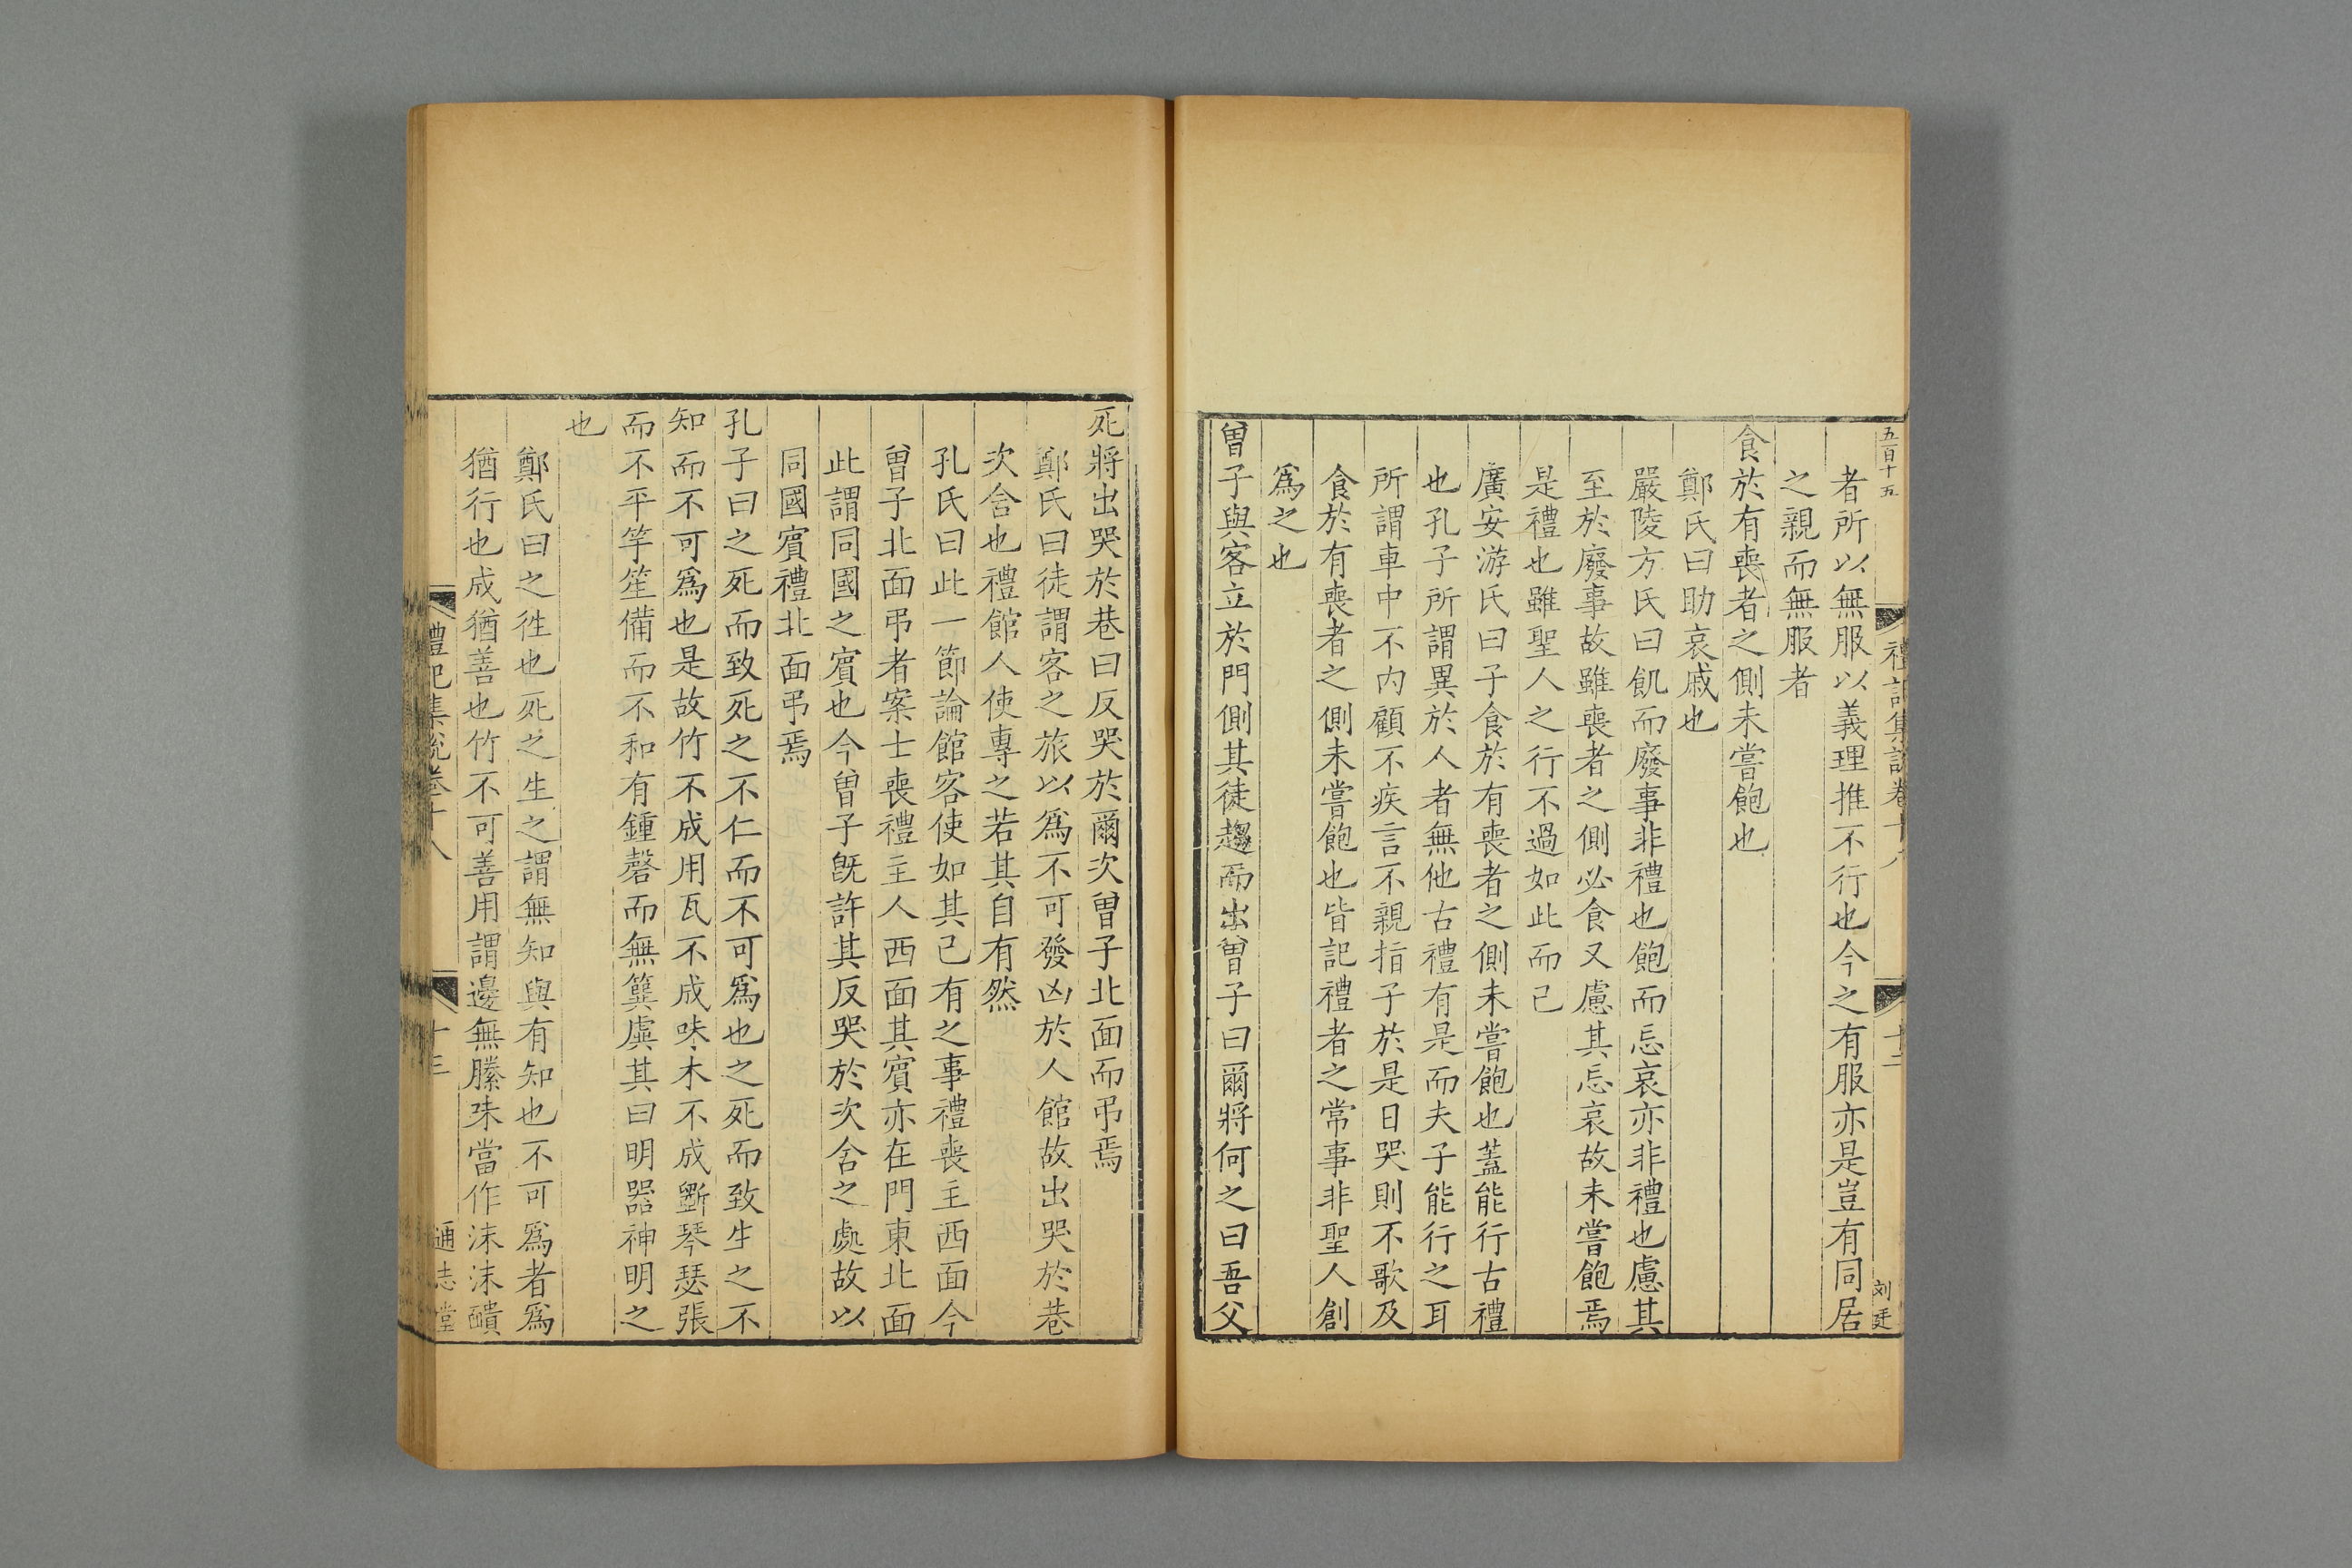 五百十五
禮記集說卷十八
十二
刘廷
者所以無服以義理推不行也今之有服亦是豈有同居
之親而無服者
食於有喪者之側未嘗飽也
鄭氏曰助哀戚也
嚴陵方氏曰飢而廢事非禮也飽而忘哀亦非禮也慮其
至於廢事故雖喪者之側必食又慮其忘哀故未嘗飽焉
是禮也雖聖人之行不過如此而已
廣安游氏曰子食於有喪者之側未嘗飽也蓋能行古禮
也孔子所謂異於人者無他古禮有是而夫子能行之耳
所謂車中不內顧不疾言不親指子於是日哭則不歌及
食於有喪者之側未嘗飽也皆記禮者之常事非聖人創
爲之也
曾子與客立於門側其徒趨而出曾子曰爾將何之曰吾父
死將出哭於巷曰反哭於爾次曾子北面而弔焉
鄭氏曰徒謂客之旅以爲不可發凶於人館故出哭於巷
次舍也禮館人使專之若其自有然
孔氏曰此一節論館客使如其已有之事禮喪主西面今
曾子北面弔者案士喪禮主人西面其賓亦在門東北面
此謂同國之賓也今曾子旣許其反哭於次舍之處故以
同國賓禮北面弔焉
孔子曰之死而致死之不仁而不可爲也之死而致生之不
知而不可爲也是故竹不成用瓦不成味木不成斲琴瑟張
而不平竽笙備而不和有鍾磬而無簨虡其曰明器神明之
也
鄭氏曰之徃也死之生之謂無知與有知也不可爲者爲
猶行也成猶善也竹不可善用謂邊無縢味當作沬沬靧
禮記集說卷十八
十三
通志堂